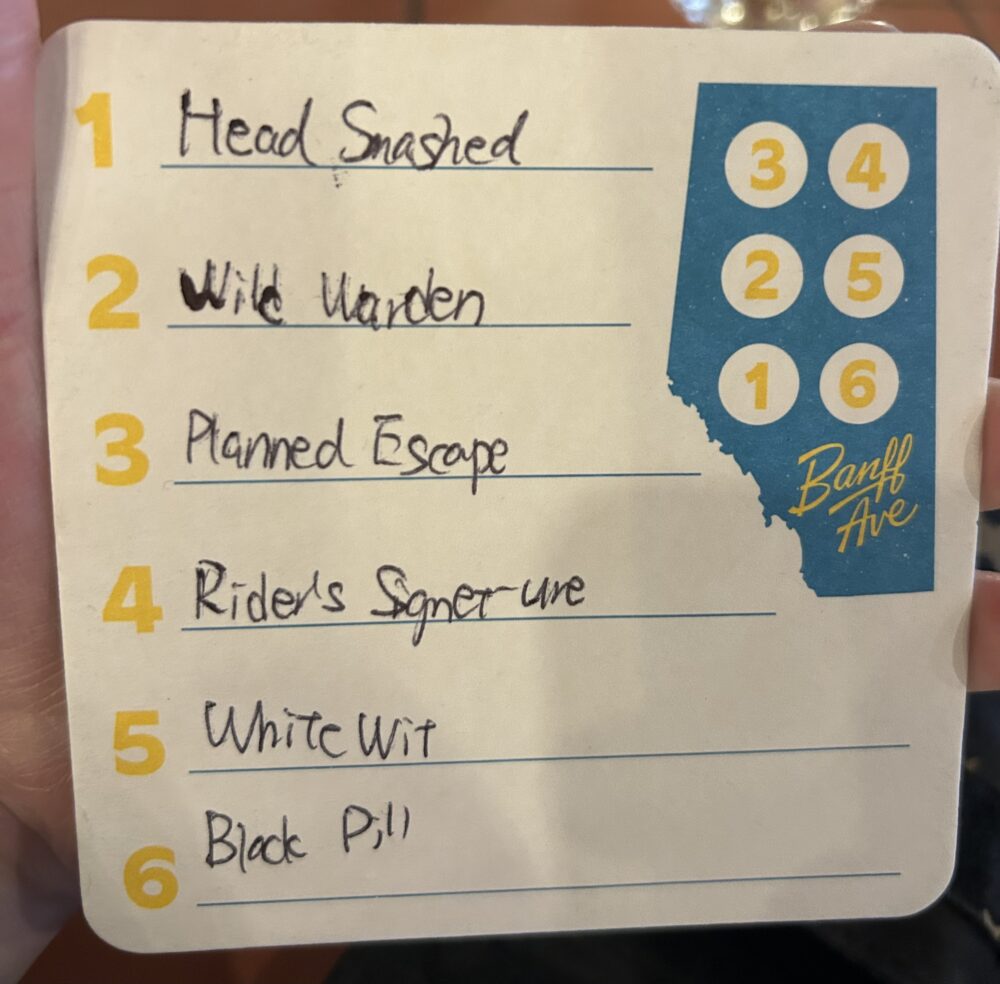 1 Head Smashed
2 Wild Warden
3 Planned Escape
4 Rider's Signet-ure
5 White Wit
6 Black Pill
3 4
2 5
1 6
Banff
Ave